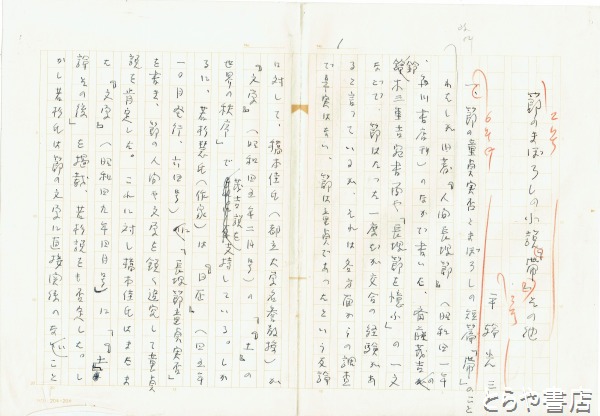 節のまぼろしの小説「帯」その他
平輪光三
節の童貞実否とまぼろしの短篇「帯」のこと
わたしが旧著『人間長塚節』(昭和四一年
・市川書店刊)のなかで書いた、斎藤茂吉の
鈴木三重吉宛書簡や「長塚節を憶ふ」の一文
などで、節はたった一度だが交合の経験があ
ると言っているが、それは各方面からの調査
で事実はない、節は童貞であったという反論
に対して、橋本佳氏(都立大学名誉教授)が
『文学』(昭和四五年二月号)の「『土』の
世界の秩序」で(茂吉説を)支持している。しか
るに、若杉慧氏(作家)は『日在』(四五年
一〇月発行、六四号)に「長塚節童貞実否」
を書き、節の人間や文学を鋭く追究して童貞
説を肯定した。これに対し橋本佳氏はまたま
た『文学』(昭和四九年四月号)に「『土』
論その後」を掲載、若杉説をも否定した。し
かし若杉氏は節の文学に直接関係のないこと
とらや書店